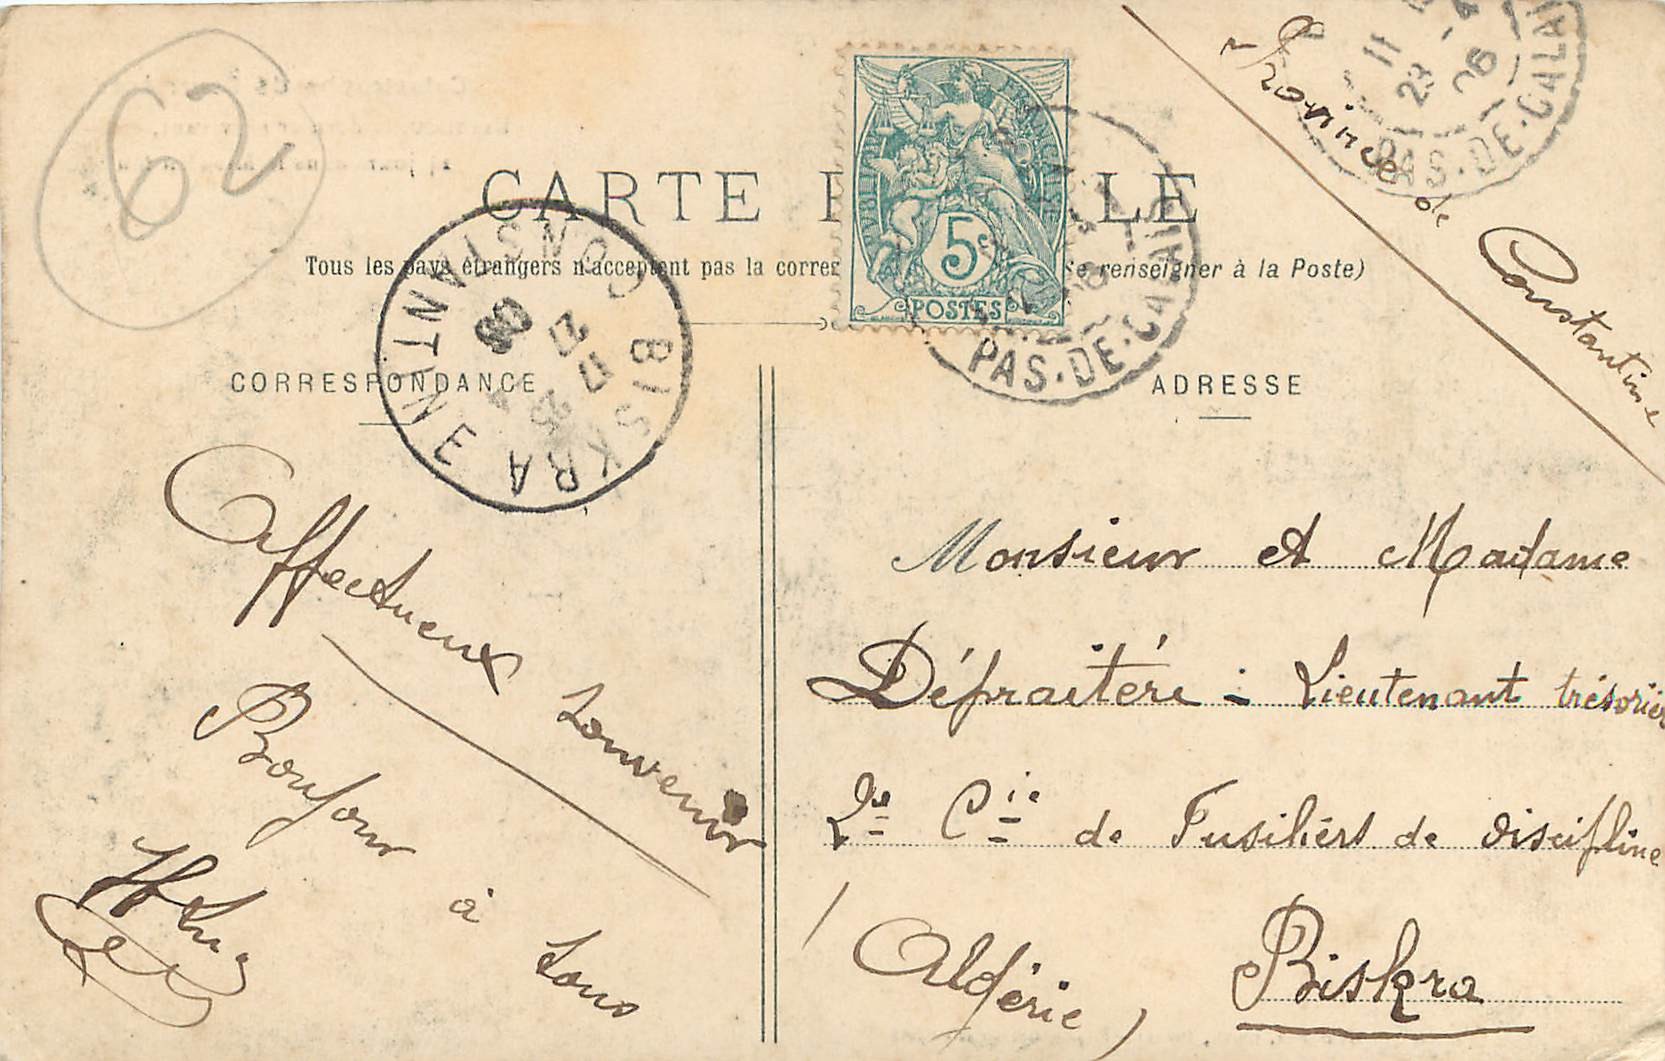 62
CARTE P LLE
Tous les pays étrangers n'acceptent pas la corres Se renseigner à la Poste)
5c
POSTES
PAS-DE-CALAIS
11
23 -4
06
PAS-DE-CALAIS
BISKRA
CONSTANTINE
25 4
06
CORRESPONDANCE
ADRESSE
Province de Constantine
Affectueux souvenir
Bonjour à tous
Monsieur et Madame
Défraitére - Lieutenant trésorier
2e Cie de Fusiliers de discipline
Biskra
(Algérie)